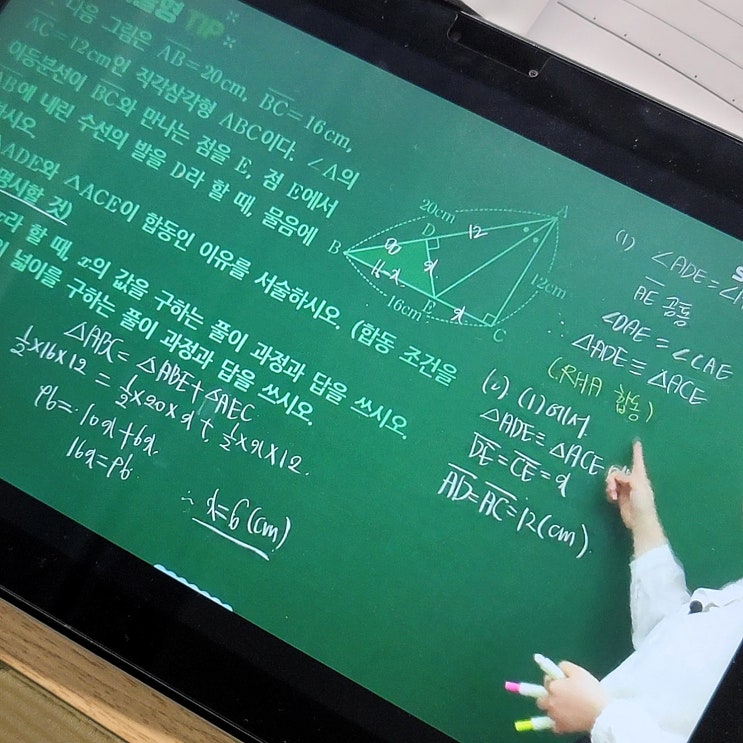 TIP
다음 그림은 AB=20cm, BC=16cm,
AC=12cm인 직각삼각형 ABC이다. ∠A의
이등분선이 BC와 만나는 점을 E, 점 E에서
AB에 내린 수선의 발을 D라 할 때, 물음에
△ADE와 △ACE이 합동인 이유를 서술하시오. (합동 조건을
명시할 것)
라 할 때, x의 값을 구하는 풀이 과정과 답을 쓰시오.
의 넓이를 구하는 풀이 과정과 답을 쓰시오.
20cm
A
D
12
8
B
x
16-x
12cm
16cm
E
x
C
△ABC = △ABE+△AEC
½×16×12 = ½×20×x + ½×x×12.
96= 10x+6x.
16x=96.
∴ x=6(cm)
(1) ∠ADE=∠
AE 공통
∠DAE = ∠CAE
△ADE≡△ACE
(RHA 합동)
(1)에서
△ADE≡△ACE
DE=CE=x
AD=AC=12(cm).